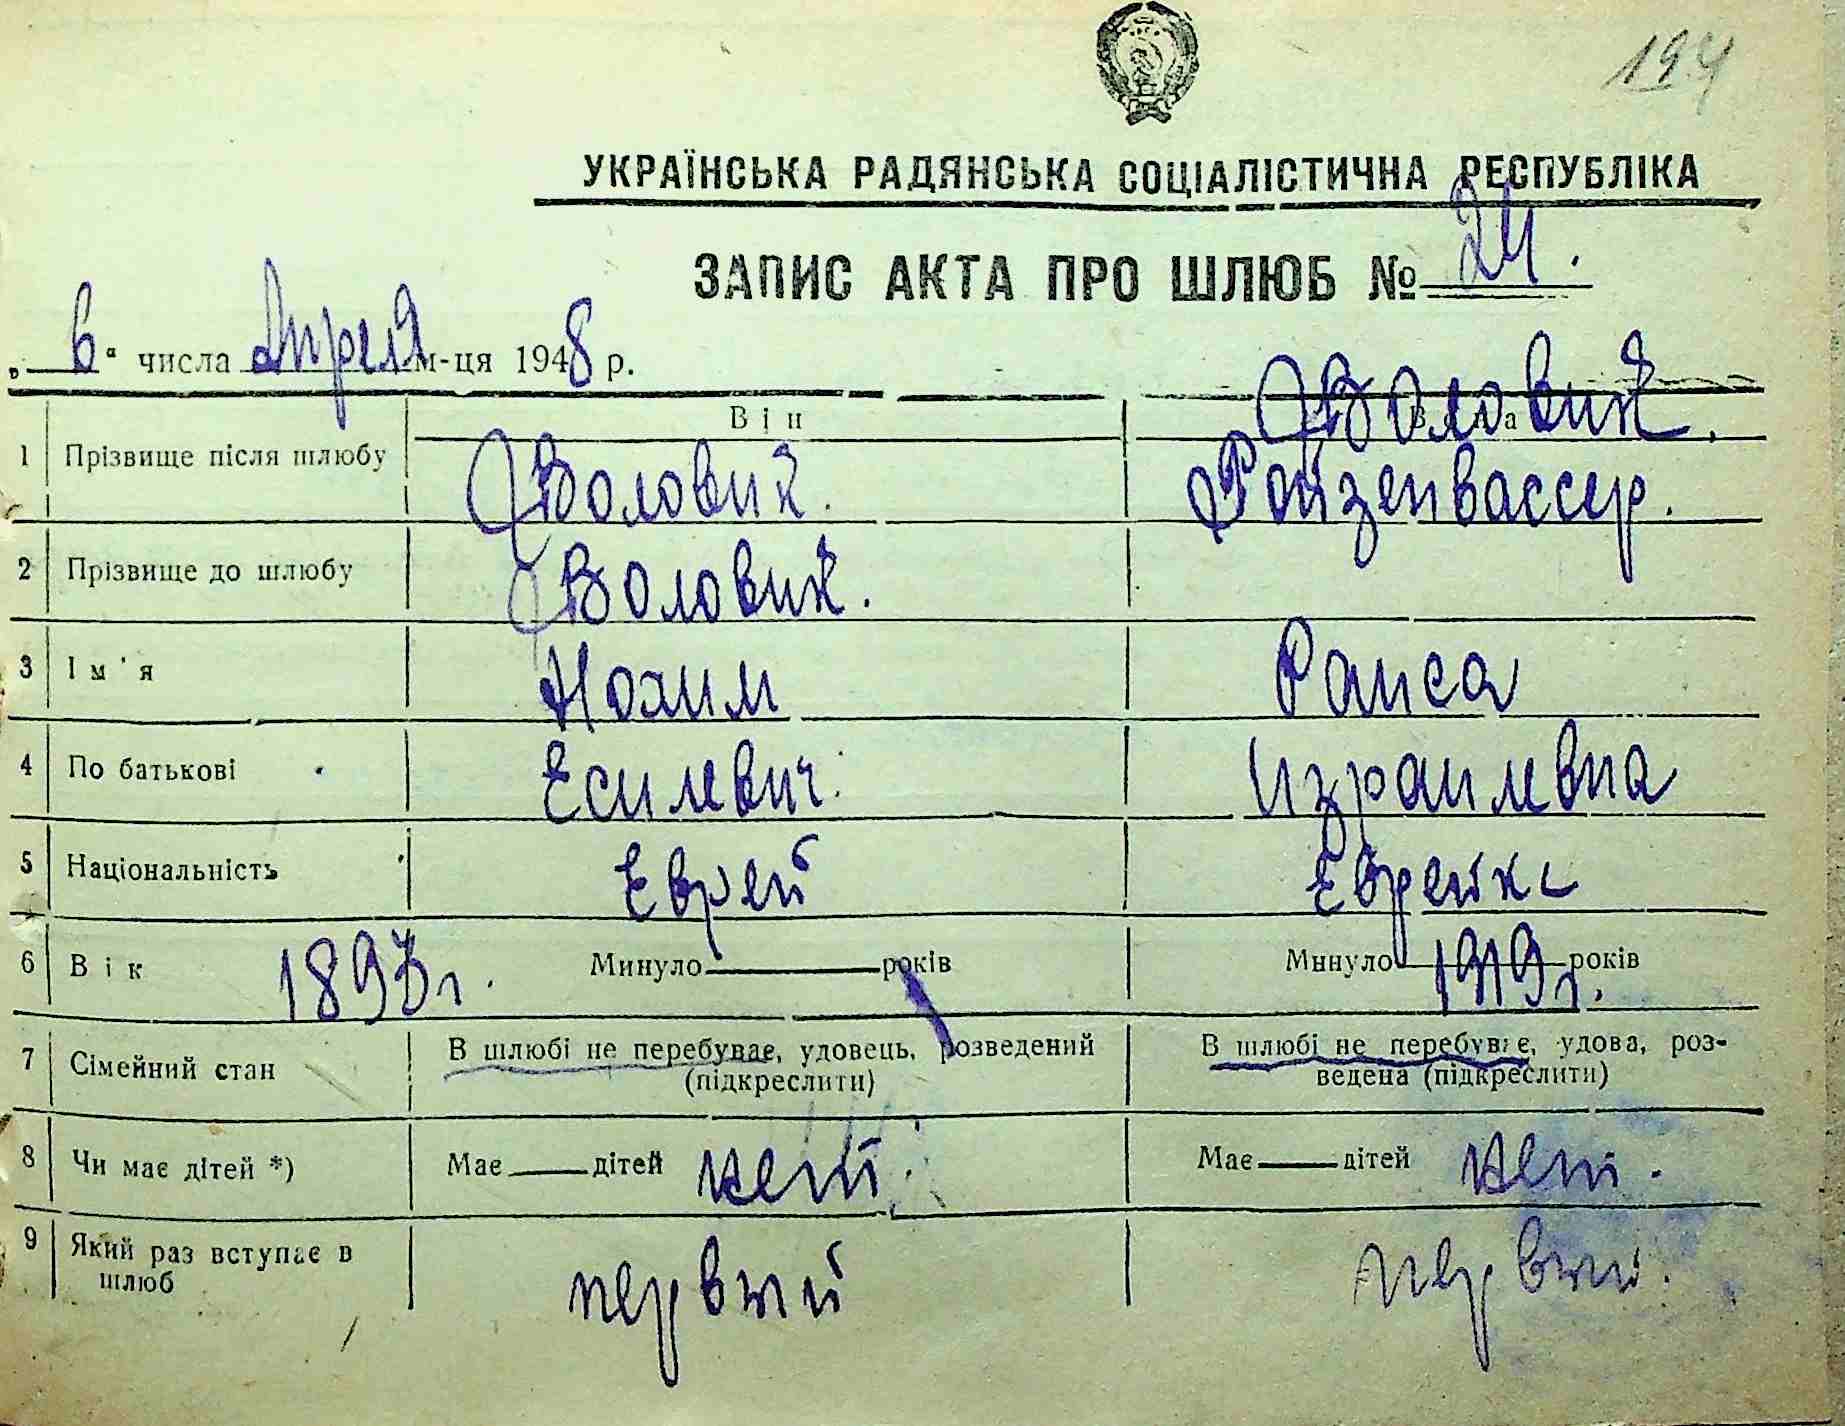 194
УКРАЇНСЬКА РАДЯНСЬКА СОЦІАЛІСТИЧНА РЕСПУБЛІКА
ЗАПИС АКТА ПРО ШЛЮБ № 24.
„ 6 “ числа Апреля м-ця 1948 р.
Він Вона Воловик.
1 Прізвище після шлюбу Воловик. Ройзенвассер.
2 Прізвище до шлюбу Воловик.
3 Ім'я Нохим Раиса
4 По батькові Есилевич. Израилевна
5 Національність Еврей Еврейка
6 Вік 1893 г. Минуло років Минуло 1919 г. років
7 Сімейний стан В шлюбі не перебуває, удовець, розведений В шлюбі не перебуває, удова, роз-
(підкреслити) ведена (підкреслити)
8 Чи має дітей *) Має дітей нет. Має дітей нет.
9 Який раз вступає в
шлюб первый первый.